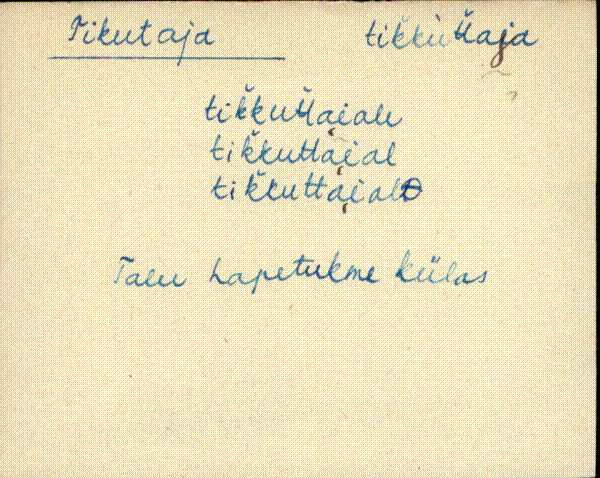 Tikutaja tik̆kut̆taja
tik̆kut̆tai̭ale
tik̆kuttai̭al
tik̆kuttai̭alt
Talu Lapetukme külas